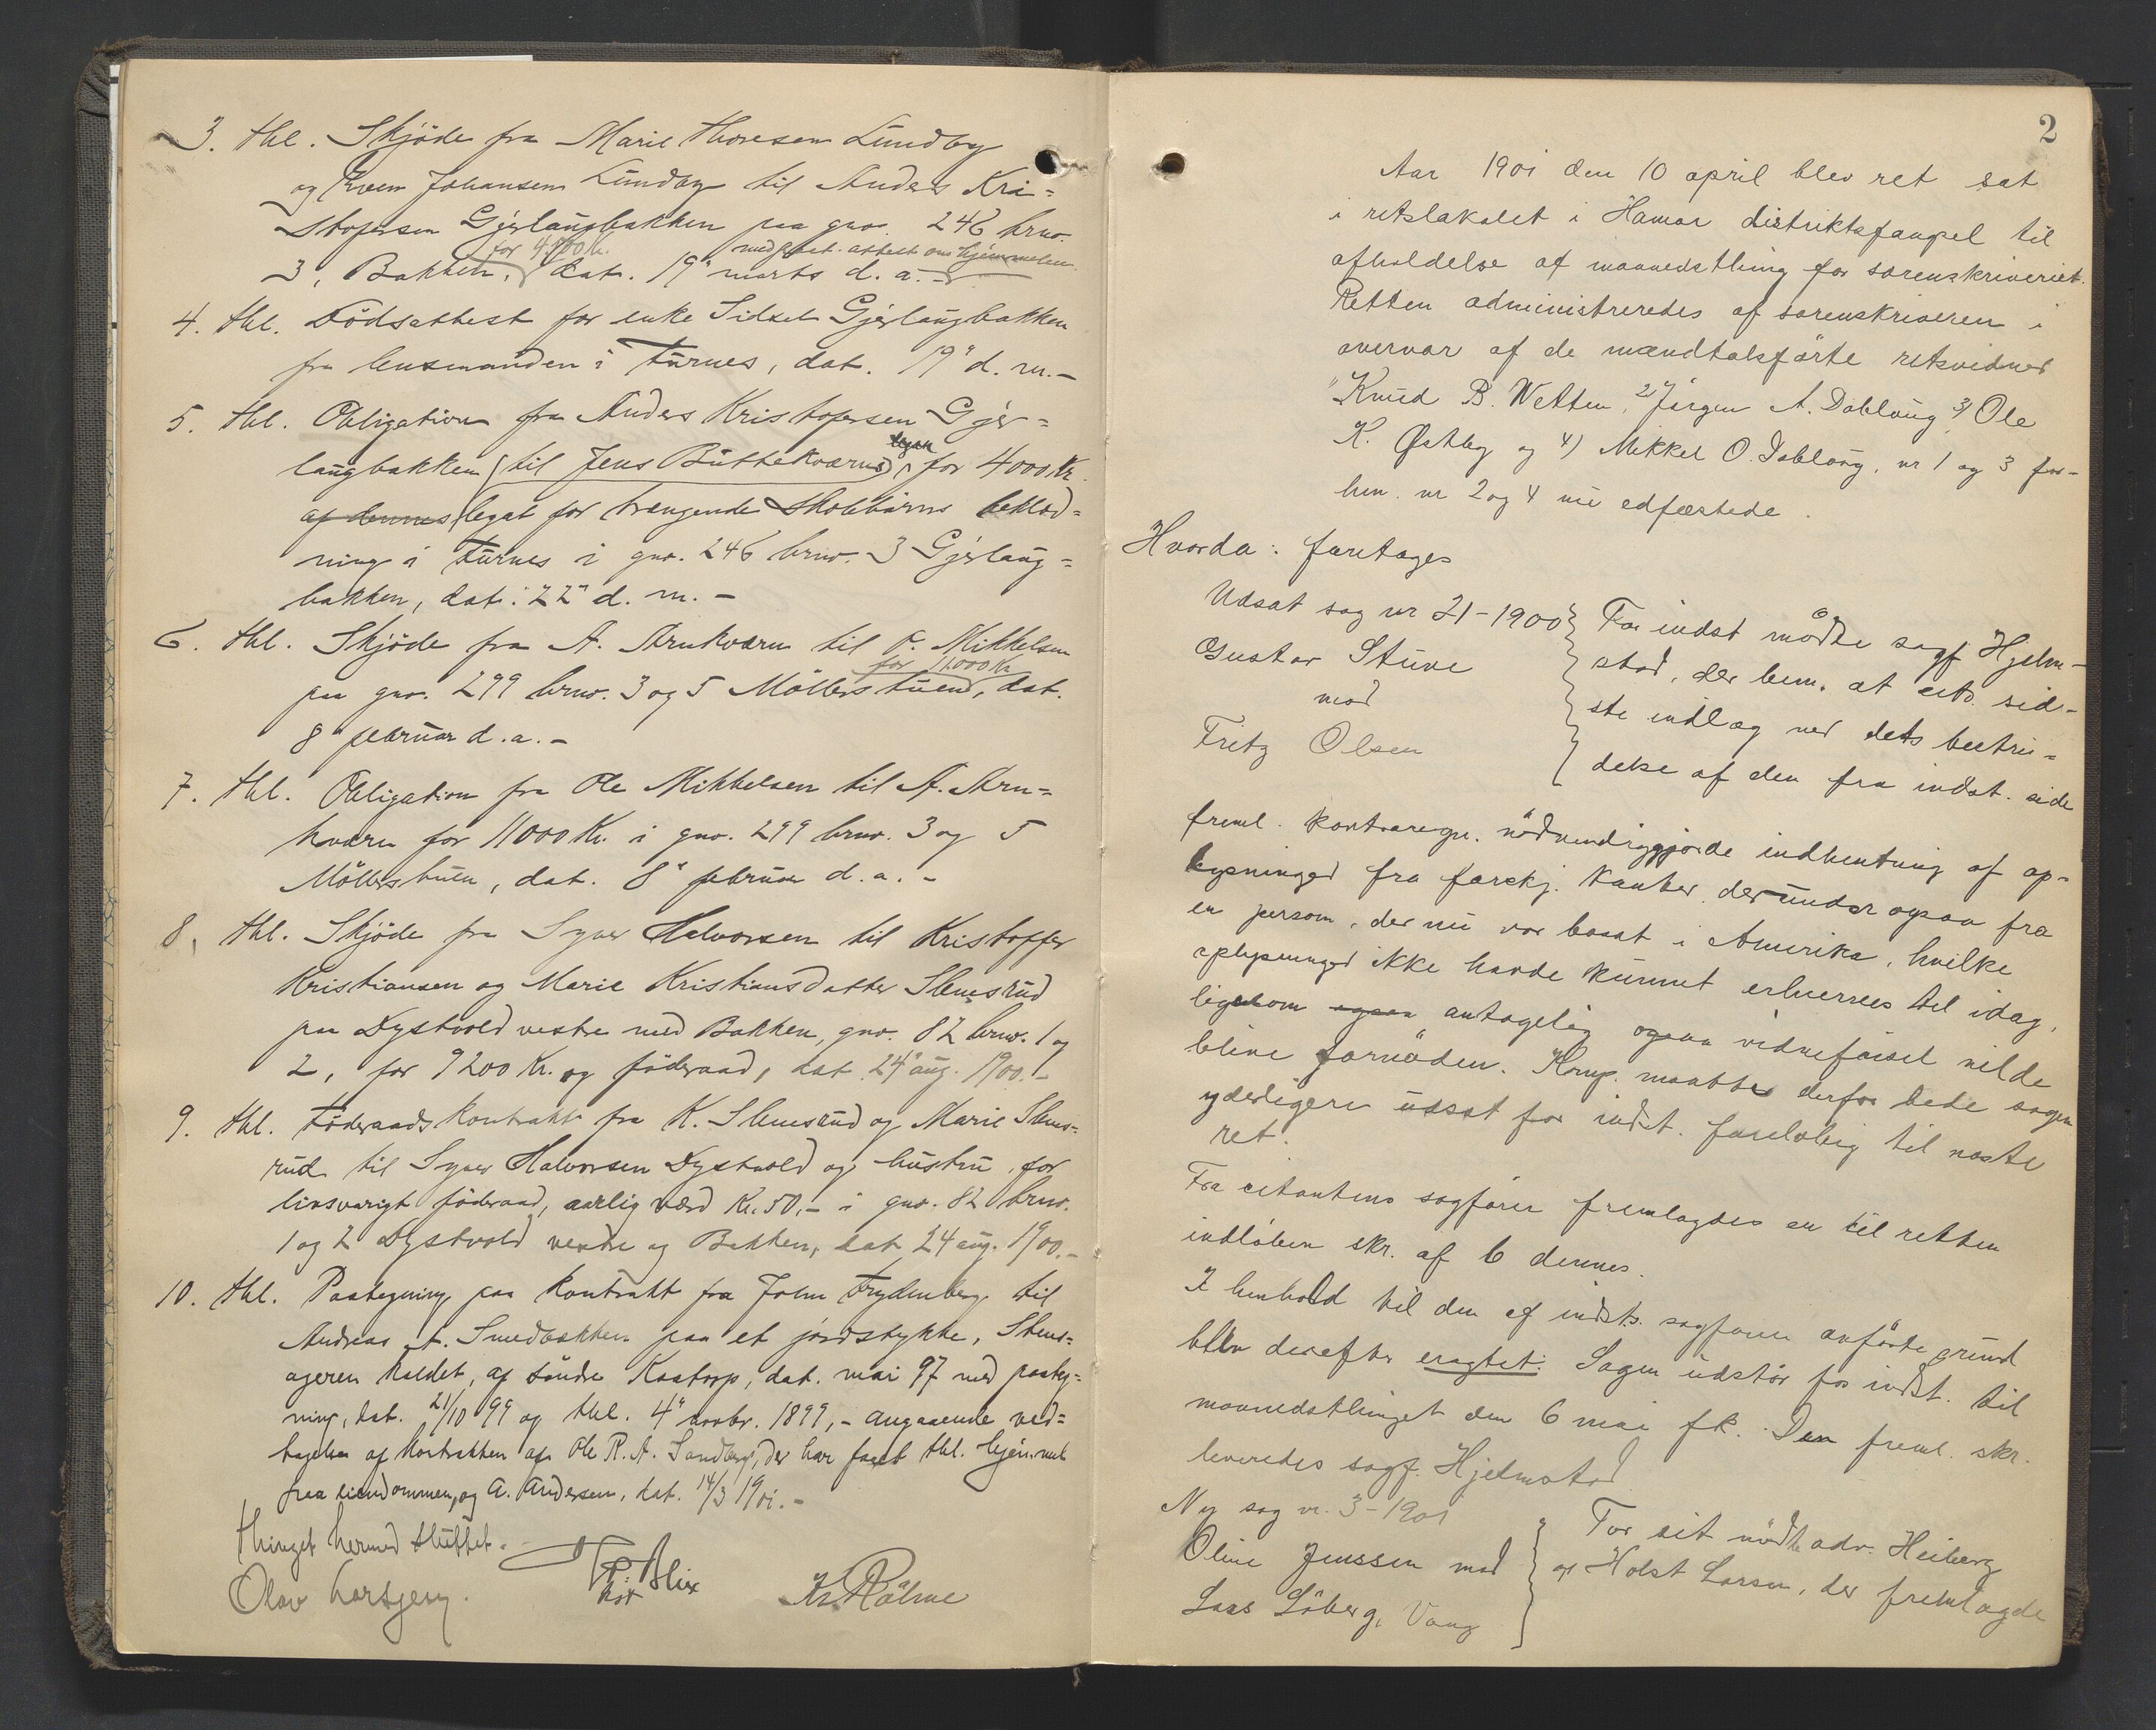 3. thl. Skjöde fra Marie Thoresen Lundby
og Johansen Lundby til Anders Kri=
stofersen Gjerlaugbakken paa gno. 246 brno.
for 4800 Kr. med attest om hjemmelen
3, Bakken, dat. 19" marts d. a. -
4. thl. Dödsattest for enke Sidsel Gjerlaugbakken
fra lensmanden i Furnes, dat. 19" d. m. -
5. thl. Obligation fra Anders Kristofersen Gjer=
laugbakken (til Jens Buttekværns legat for 4000 Kr.
af dennes legat for trængende skolebarns beklæd=
ning i Furnes i gno. 246 brno. 3 Gjerlaug=
bakken, dat. 22" d. m. -
6. thl. Skjöde fra A. Arnkværn til O. Mikkelsen
for 11000 Kr
paa gno. 299 brno. 3 og 5 Möllerstuen, dat.
8 februar d. a. -
7. thl. Obligation fra Ole Mikkelsen til A. Arn=
kværn for 11000 Kr. i gno. 299 brno. 3 og 5
Möllerstuen, dat. 8" februar d. a. -
8, thl. Skjöde fra Syver Halvorsen til Kristoffer
Kristiansen og Marie Kristiansdatter Slemsrud
paa Dystvold vestre med Bakken, gno. 82 brno. 1 og
2, for 9200 Kr. og föderaad, dat. 24" aug. 1900. -
9. thl. Föderaadskontrakt fra K. Slemsrud og Marie Slems=
rud til Syver Halvorsen Dystvold og hustru, for
livsvarigt föderaad, aarlig værd Kr. 50,- i gno. 82 brno.
1 og 2 Dystvold vestre og Bakken, dat. 24 aug. 1900. -
10. thl. Paategning paa kontrakt fra Johan Frydenberg til
Andreas A. Smedbakken paa et jordstykke, Stens=
ageren kaldet, af söndre Kaatorp, dat. mai 97 med paateg=
ning, dat. 21/10 99 og thl. 4" novbr. 1899, - angaaende ved=
tagelse af kontrakten af Ole R. A. Sandberg, der har faaet thl. hjemmel
paa eiendommen, og A. Andersen, dat. 14/3 1901. -
Thinget hermed sluttet.
Olav Kr. Rålme
2
Aar 1901 den 10 april blev ret sat
i retslokalet i Hamar distriktsfængsel til
afholdelse af maanedsthing for sorenskriveriet.
Retten administreredes af sorenskriveren i
overvær af de mandtalsförte retsvidner
1) Knud B. Wetten, 2) Jörgen A. Dobloug 3) Ole
K. Østby og 4) Mikkel O. Dobloug, nr 1 og 3 for-
hen. nr 2 og 4 nu edfæstede.
Hvorda: foretages
Udsat sag nr 21-1900 For indst mødte sagf Hjelm-
Gustav Stuve stad, der bem. at cit. sid-
mod ste indlæg ved dets bestri-
Fritz Olsen delse af den fra indst. side
freml. kontraregn. nödvendiggjorde indhentning af op-
lysninger fra forskj. kanter, derunder ogsaa fra
en person, der nu var bosat i Amerika, hvilke
oplysninger ikke havde kunnet erhverves til idag,
ligesom ogsaa antagelig ogsaa vidneførsel vilde
blive fornöden. Komp. maatte derfor bede sagen
yderligere udsat for indst. foreløbig til næste
ret.
Fra citantens sagfører fremlagdes en til retten
indløben skr. af 6 dennes.
I henhold til den af indsts. sagfører anførte grund
blev derefter eragtet: Sagen udstår for indst. til
maanedsthinget den 6 mai fk. Den freml. skr.
leveredes sagf. Hjelmstad
Ny sag nr. 3-1901 For cit mødte adv. Heiberg
Oline Jenssen mod og Holst Larsen, der fremlagde
Lars Löberg, Vang